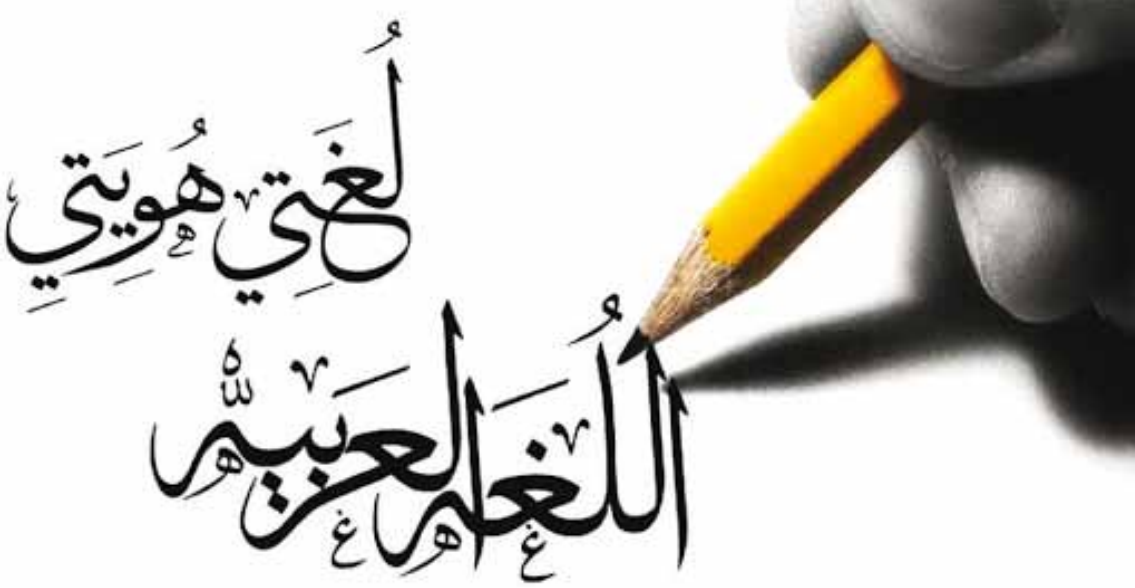 لُغَتِي هُويَتِي
اللُغَه العَربيه